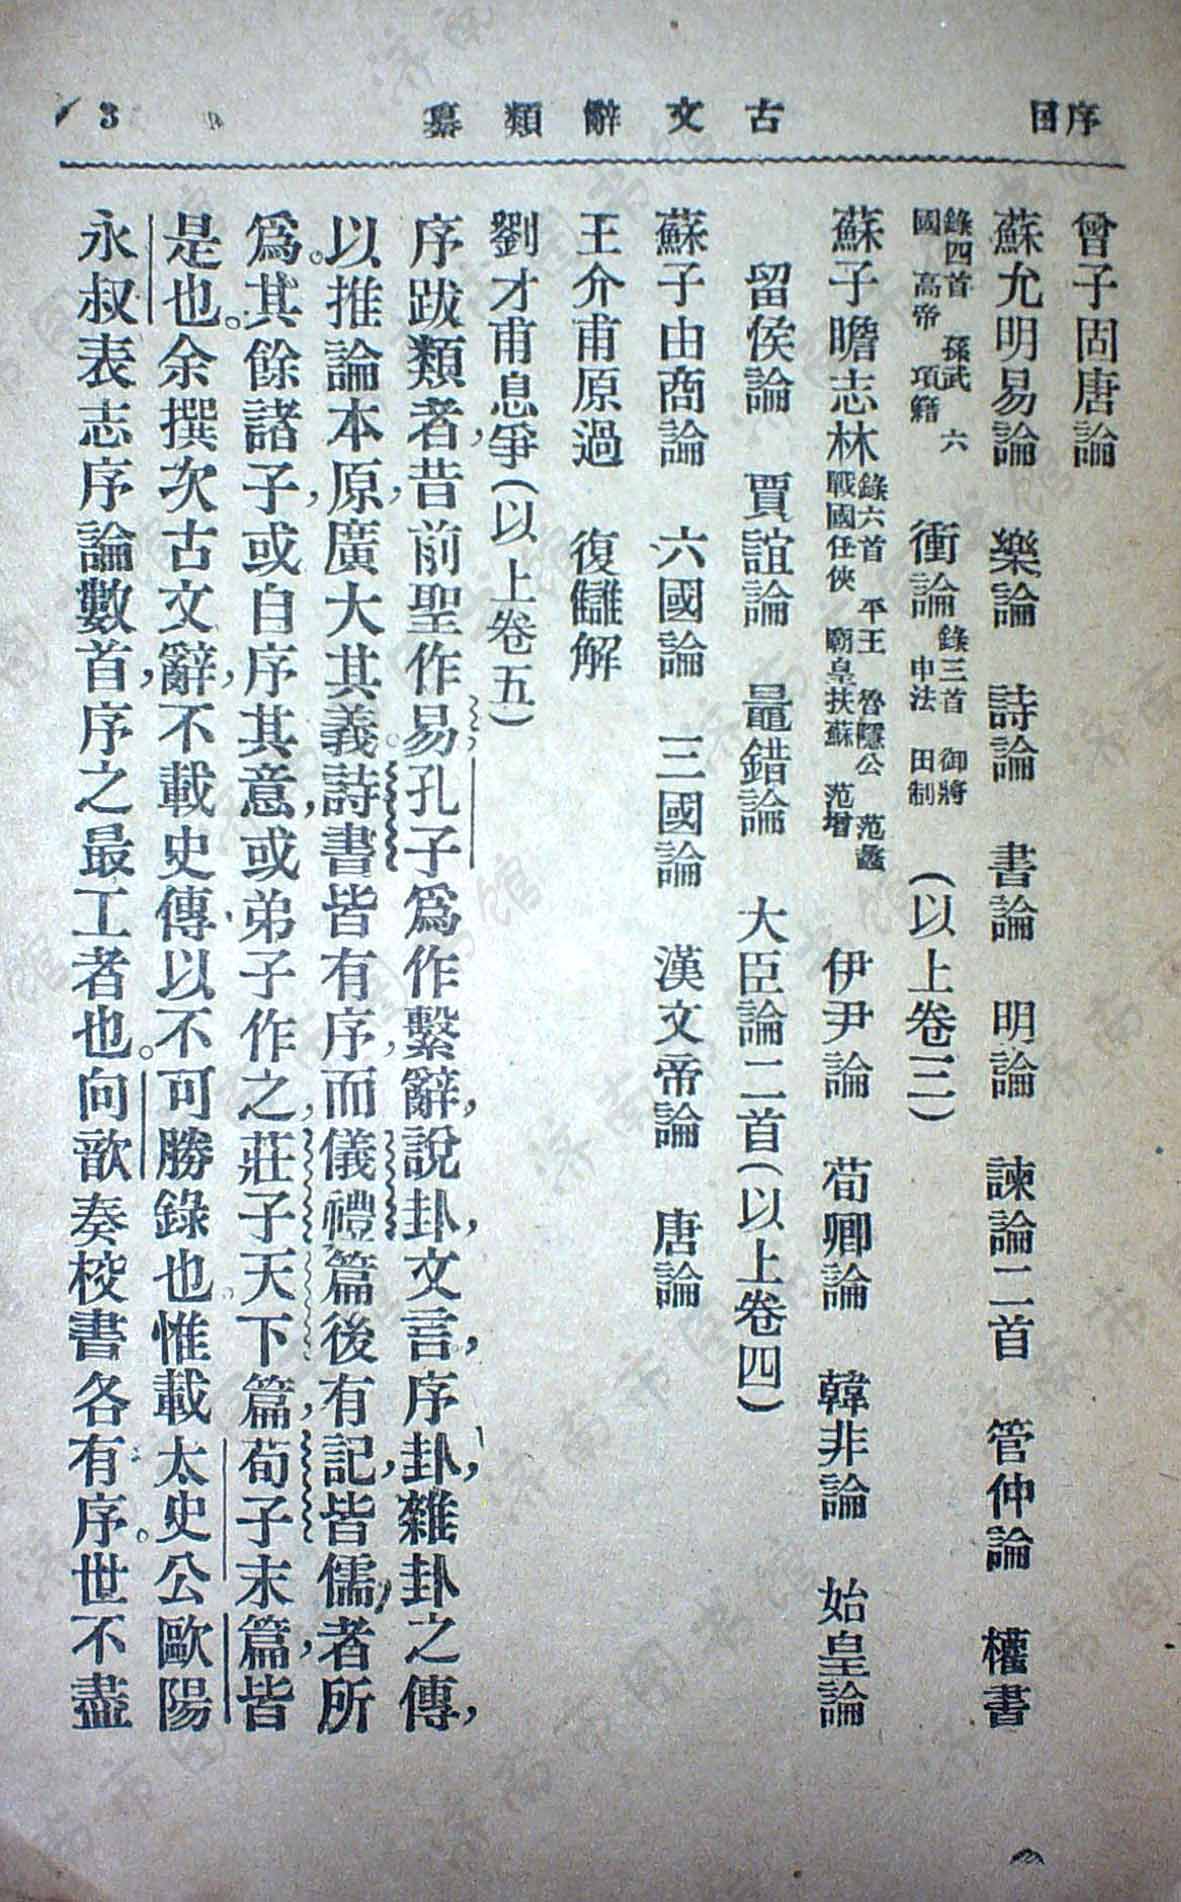 序目
古文辭類纂
3
曾子固唐論
蘇允明易論　樂論　詩論　書論　明論　諫論二首　管仲論　權書
錄四首　孫武　六
國　高帝　項籍
衡論
錄三首　御將
申法　田制
（以上卷三）
蘇子瞻志林
錄六首　平王　魯隱公　范蠡
戰國任俠　始皇扶蘇　范增
伊尹論　荀卿論　韓非論　始皇論
留侯論　賈誼論　鼂錯論　大臣論二首（以上卷四）
蘇子由商論　六國論　三國論　漢文帝論　唐論
王介甫原過　復讎解
劉才甫息爭（以上卷五）
序跋類者，昔前聖作易，孔子爲作繫辭，說卦，文言，序卦，雜卦之傳，
以推論本原，廣大其義。詩書皆有序，而儀禮篇後有記，皆儒者所
爲。其餘諸子，或自序其意，或弟子作之，莊子天下篇，荀子末篇，皆
是也。余撰次古文辭，不載史傳，以不可勝錄也。惟載太史公歐陽
永叔表志序論數首，序之最工者也。向歆奏校書各有序。世不盡